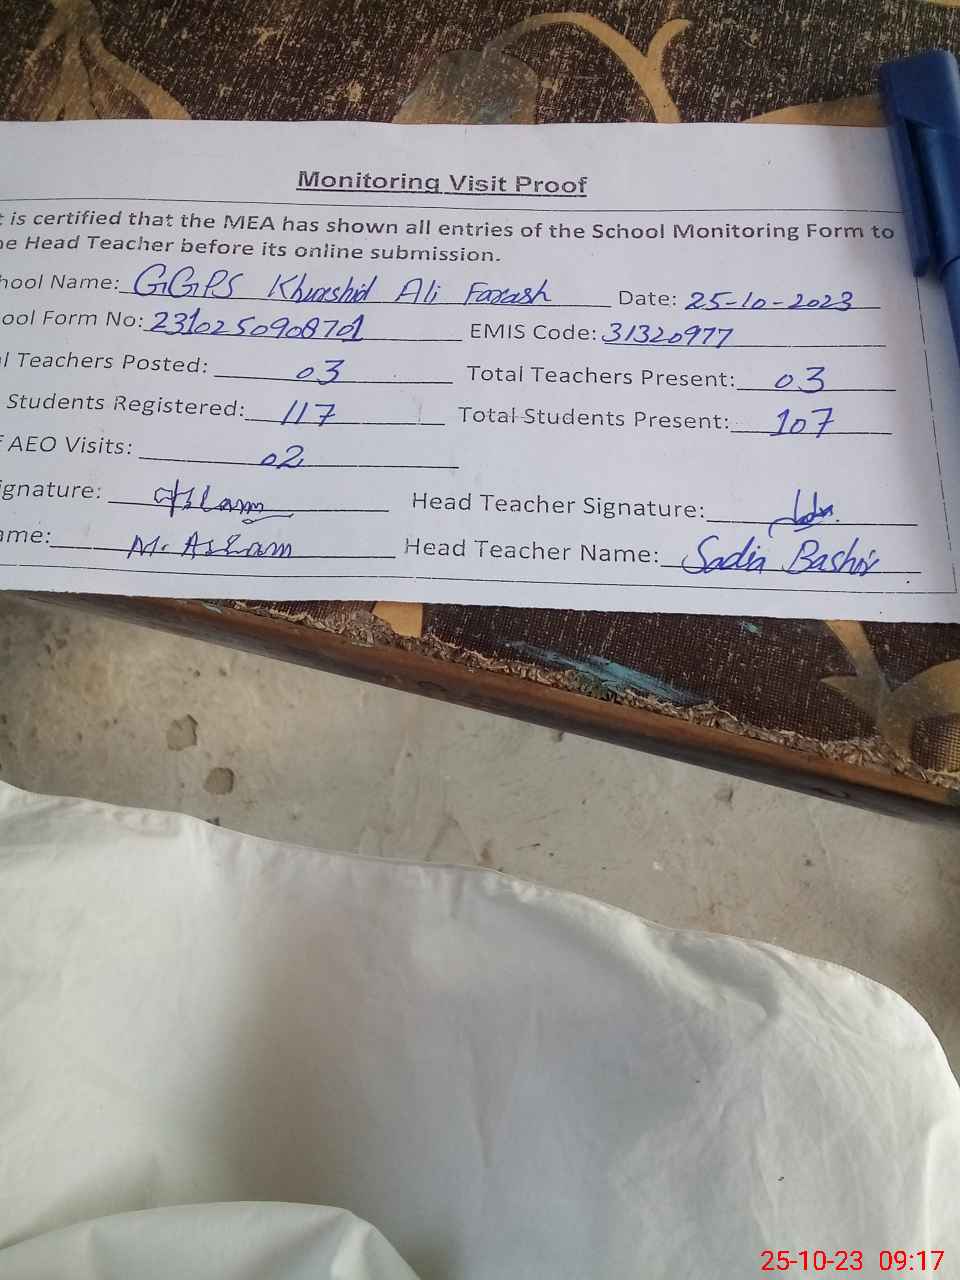 Monitoring Visit Proof
t is certified that the MEA has shown all entries of the School Monitoring Form to
he Head Teacher before its online submission.
hool Name: GGPS Khurshid Ali Farash Date: 25-10-2023
ool Form No: 2310250908701 EMIS Code: 31320977
l Teachers Posted: 03 Total Teachers Present: 03
Students Registered: 117 Total Students Present: 107
f AEO Visits: 02
ignature: Aslam Head Teacher Signature:
ame: M. Aslam Head Teacher Name: Sadia Bashir
25-10-23 09:17